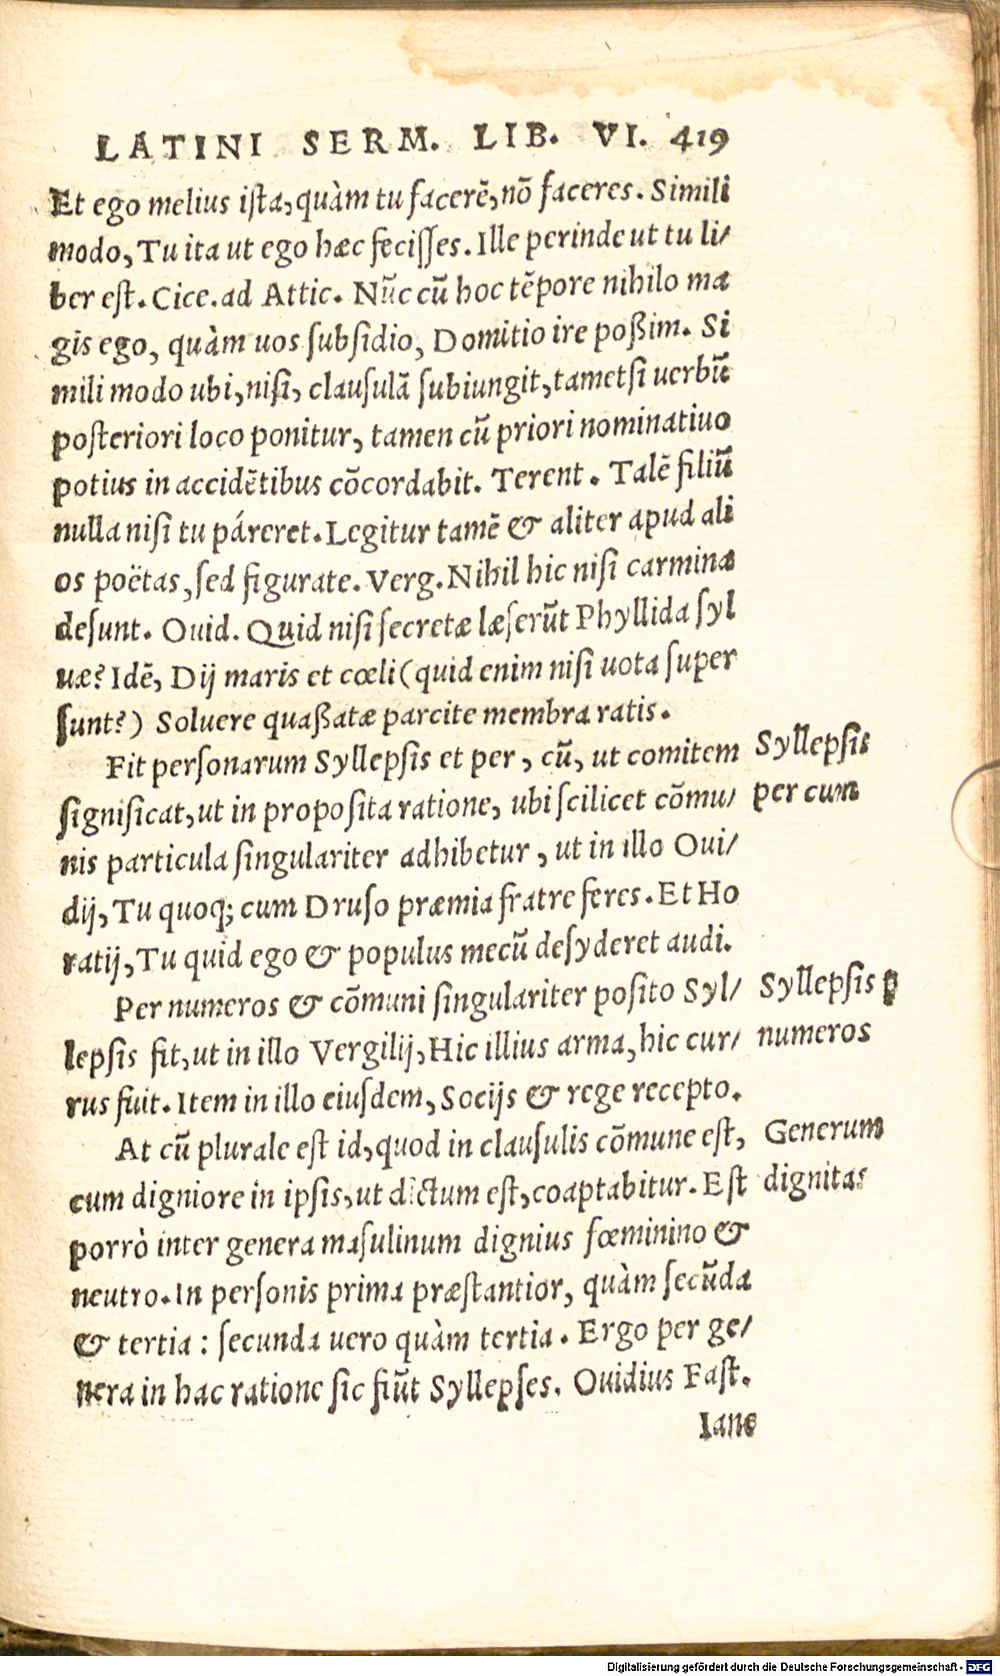 LATINI SERM. LIB. VI. 419
Et ego melius ista, quàm tu facerẽ, nõ faceres. Simili
modo, Tu ita ut ego hæc fecisses. Ille perinde ut tu li/
ber est. Cice. ad Attic. Nũc cũ hoc tẽpore nihilo ma
gis ego, quàm uos subsidio, Domitio ire poßim. Si
mili modo ubi, nisi, clausulã subiungit, tametsi uerbũ
posteriori loco ponitur, tamen cũ priori nominatiuo
potius in accidẽtibus cõcordabit. Terent. Talẽ filiũ
nulla nisi tu páreret. Legitur tamẽ & aliter apud ali
os poëtas, sed figurate. Verg. Nihil hic nisi carmina
desunt. Ouid. Quid nisi secretæ læserũt Phyllida syl
uæ? Idẽ, Dij maris et cœli (quid enim nisi uota super
sunt?) Soluere quaßatæ parcite membra ratis.
Fit personarum Syllepsis et per, cũ, ut comitem
significat, ut in proposita ratione, ubi scilicet cõmu/
nis particula singulariter adhibetur, ut in illo Oui/
dij, Tu quoq; cum Druso præmia fratre feres. Et Ho
ratij, Tu quid ego & populus mecũ desyderet audi.
Per numeros & cõmuni singulariter posito Syl/
lepsis fit, ut in illo Vergilij, Hic illius arma, hic cur/
rus fuit. Item in illo eiusdem, Socijs & rege recepto.
At cũ plurale est id, quod in clausulis cõmune est,
cum digniore in ipsis, ut dictum est, coaptabitur. Est
porrò inter genera masulinum dignius fœminino &
neutro. In personis prima præstantior, quàm secũda
& tertia: secunda uero quàm tertia. Ergo per ge/
nera in hac ratione sic fiũt Syllepses. Ouidius Fast.
Iane
Syllepsis
per cum
Syllepsis ꝑ
numeros
Generum
dignitas
Digitalisierung gefördert durch die Deutsche Forschungsgemeinschaft - DFG